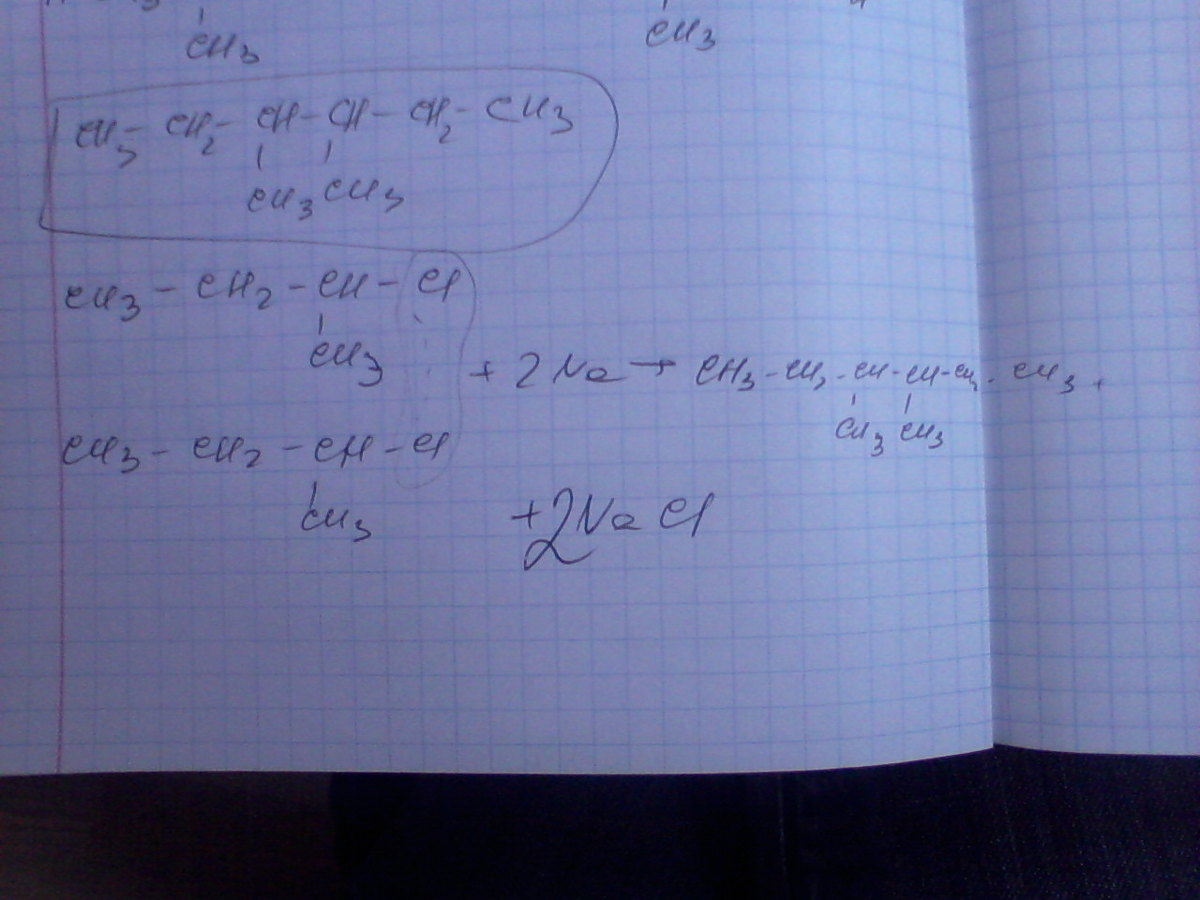 CH3 CH3
CH3 - CH2 - CH - CH - CH2 - CH3
CH3 CH3
CH3 - CH2 - CH - Cl
CH3
+ 2Na → CH3 - CH2 - CH - CH - CH2 - CH3 +
CH3 CH3
CH3 - CH2 - CH - Cl
CH3
+2NaCl